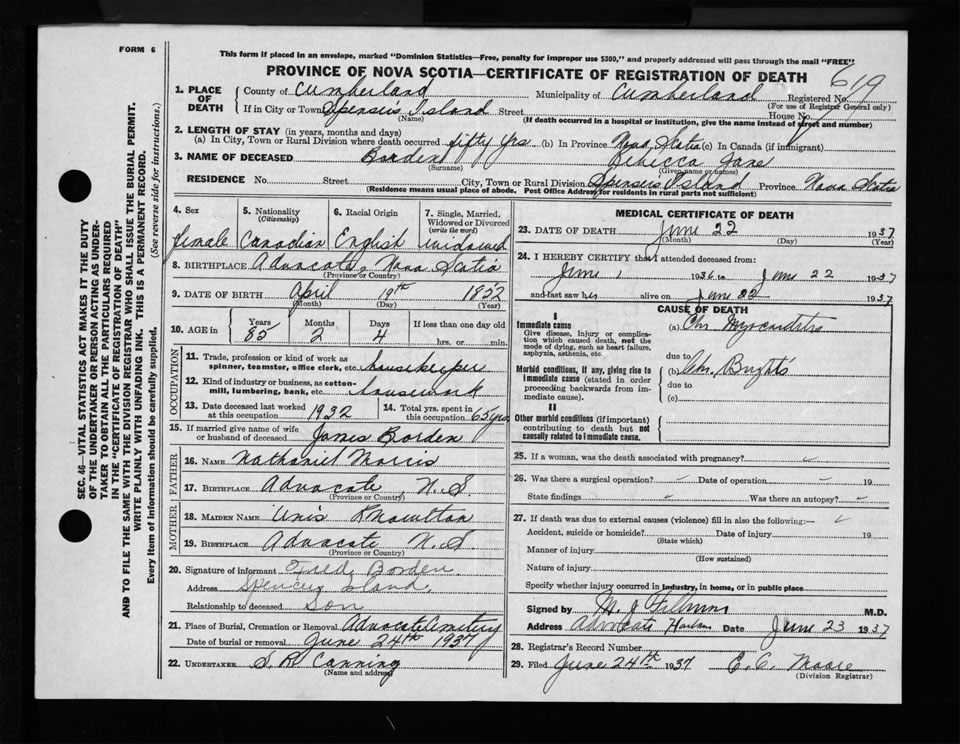 FORM 6
This form if placed in an envelope, marked "Dominion Statistics—Free, penalty for improper use $300," and properly addressed will pass through the mail "FREE"
PROVINCE OF NOVA SCOTIA—CERTIFICATE OF REGISTRATION OF DEATH
619
1. PLACE OF DEATH County of Cumberland Municipality of Cumberland Registered No.
(For use of Registrar General only)
If in City or Town Spenser's Island Street House No.
(Name) (If death occurred in a hospital or institution, give the name instead of street and number)
2. LENGTH OF STAY (in years, months and days)
(a) In City, Town or Rural Division where death occurred fifty yrs (b) In Province Nova Scotia (c) In Canada (if immigrant)
3. NAME OF DECEASED Borden Rebecca Jane
(Surname) (Given name or names)
RESIDENCE No. Street City, Town or Rural Division Spenser's Island Province Nova Scotia
(Residence means usual place of abode. Post Office Address for residents in rural parts not sufficient)
4. Sex 5. Nationality (Citizenship) 6. Racial Origin 7. Single, Married, Widowed or Divorced (write the word)
female Canadian English widowed
8. BIRTHPLACE Advocate, Nova Scotia
(Province or Country)
9. DATE OF BIRTH April 19th 1852
(Month) (Day) (Year)
10. AGE in Years Months Days If less than one day old
85 2 4 hrs. or min.
OCCUPATION
11. Trade, profession or kind of work as spinner, teamster, office clerk, etc. housekeeper
12. Kind of industry or business, as cotton-mill, lumbering, bank, etc. housework
13. Date deceased last worked at this occupation 1932 14. Total yrs. spent in this occupation 65 yrs
15. If married give name of wife or husband of deceased James Borden
FATHER
16. NAME Nathaniel Morris
17. BIRTHPLACE Advocate N.S.
(Province or Country)
MOTHER
18. MAIDEN NAME Unis Knowlton
19. BIRTHPLACE Advocate N.S
(Province or Country)
20. Signature of informant Fred Borden
Address Spencer Island
Relationship to deceased Son
21. Place of Burial, Cremation or Removal Advocate Cemetery
Date of burial or removal June 24th 1937
22. UNDERTAKER S. R. Canning
(Name and address)
MEDICAL CERTIFICATE OF DEATH
23. DATE OF DEATH June 22 1937
(Month) (Day) (Year)
24. I HEREBY CERTIFY that I attended deceased from:
June 1 1936 to June 22 1937
and last saw her alive on June 22 1937
CAUSE OF DEATH
I
Immediate cause
Give disease, injury or complication which caused death, not the mode of dying, such as heart failure, asphyxia, asthenia, etc.
(a) Chr. Myocarditis
due to
Morbid conditions, if any, giving rise to immediate cause (stated in order proceeding backwards from immediate cause).
(b) Chr. Brights
due to
(c)
II
Other morbid conditions (if important) contributing to death but not causally related to immediate cause.
25. If a woman, was the death associated with pregnancy?
26. Was there a surgical operation? – Date of operation – 19
State findings Was there an autopsy? –
27. If death was due to external causes (violence) fill in also the following:–
Accident, suicide or homicide? Date of injury 19
(State which)
Manner of injury
(How sustained)
Nature of injury
Specify whether injury occurred in industry, in home, or in public place
Signed by M. J. Fillmore M.D.
Address Advocate Harbor Date June 23 1937
28. Registrar's Record Number
29. Filed June 24th 1937 E. C. Moore
(Division Registrar)
SEC. 46—VITAL STATISTICS ACT MAKES IT THE DUTY
OF THE UNDERTAKER OR PERSON ACTING AS UNDER-
TAKER TO OBTAIN ALL THE PARTICULARS REQUIRED
IN THE "CERTIFICATE OF REGISTRATION OF DEATH"
AND TO FILE THE SAME WITH THE DIVISION REGISTRAR WHO SHALL ISSUE THE BURIAL PERMIT.
WRITE PLAINLY WITH UNFADING INK. THIS IS A PERMANENT RECORD.
Every item of information should be carefully supplied. (See reverse side for instructions.)